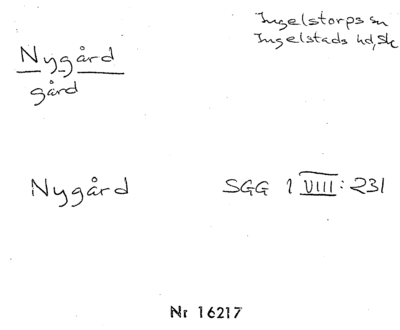 Ingelstorps sn
Ingelstads hd, Sk
Nygård
gård
Nygård
SGG 1 VIII: 231
Nr 16217